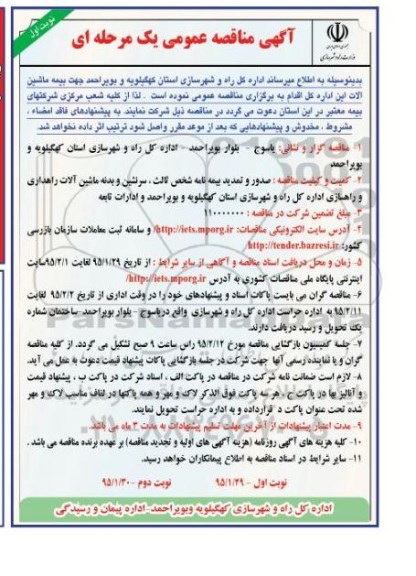 نوبت اول
آگهی مناقصه عمومی یک مرحله ای
بدینوسیله به اطلاع میرساند اداره کل راه و شهرسازی استان کهگیلویه و بویراحمد جهت بیمه ماشین
آلات این اداره کل اقدام به برگزاری مناقصه عمومی نموده است . لذا از کلیه شعب مرکزی شرکتهای
بیمه معتبر در این استان دعوت می گردد در مناقصه ذیل شرکت نمایند. به پیشنهادهای فاقد امضاء ،
مشروط ، مخدوش و پیشنهادهایی که بعد از موعد مقرر واصل شود ترتیب اثر داده نخواهد شد.
۱- مناقصه گزار و نشانی: یاسوج - بلوار بویراحمد - اداره کل راه و شهرسازی استان کهگیلویه و
بویراحمد
۲- کمیت و کیفیت مناقصه : صدور و تمدید بیمه نامه شخص ثالث ، سرنشین و بدنه ماشین آلات راهداری
و راهسازی اداره کل راه و شهرسازی استان کهگیلویه و بویراحمد و ادارات تابعه
۳- مبلغ تضمین شرکت در مناقصه :
۴- آدرس سایت الکترونیکی مناقصات: http://iets.mporg.ir/ و سامانه ثبت معاملات سازمان بازرسی
کشور: http://tender.bazresi.ir
۵- زمان و محل دریافت اسناد مناقصه و آگاهی از سایر شرایط : از تاریخ ۹۵/۱/۲۹ لغایت ۹۵/۲/۱ سایت
اینترنتی پایگاه ملی مناقصات کشوری به آدرس http://iets.mporg.ir/
۶- مناقصه گران می بایست پاکات اسناد و پیشنهادهای خود را در وقت اداری از تاریخ ۹۵/۲/۲ لغایت
۹۵/۲/۱۱ به اداره حراست اداره کل راه و شهرسازی واقع در یاسوج - بلوار بویراحمد- ساختمان شماره
یک تحویل و رسید دریافت دارند.
۷- جلسه کمیسیون بازگشایی مناقصه مورخ ۹۵/۲/۱۲ راس ساعت ۹ صبح تشکیل می گردد. از کلیه مناقصه
گران و یا نماینده رسمی آنها جهت شرکت در جلسه بازگشایی پاکات پیشنهاد قیمت دعوت به عمل می آید.
۸- لازم است ضمانت نامه شرکت در مناقصه در پاکت الف ، اسناد شرکت در پاکت ب ، پیشنهاد قیمت
و آنالیز بها در پاکت ج ، هر سه پاکت فوق الذکر لاک و مهر و همه پاکتها در لفاف مناسب لاک و مهر
شده تحت عنوان پاکت د قرار داده و به اداره حراست تحویل نمایند.
۹- مدت اعتبار پیشنهادات از آخرین مهلت تسلیم پیشنهادات به مدت ۳ ماه می باشد.
۱۰- کلیه هزینه های آگهی روزنامه (هزینه آگهی های اولیه و تجدید مناقصه) بر عهده برنده مناقصه می باشد .
۱۱- سایر شرایط در اسناد مناقصه به اطلاع پیمانکاران خواهد رسید.
نوبت اول - ۹۵/۱/۲۹ نوبت دوم - ۹۵/۱/۳۰
اداره کل راه و شهرسازی کهگیلویه وبویراحمد-اداره پیمان و رسیدگی